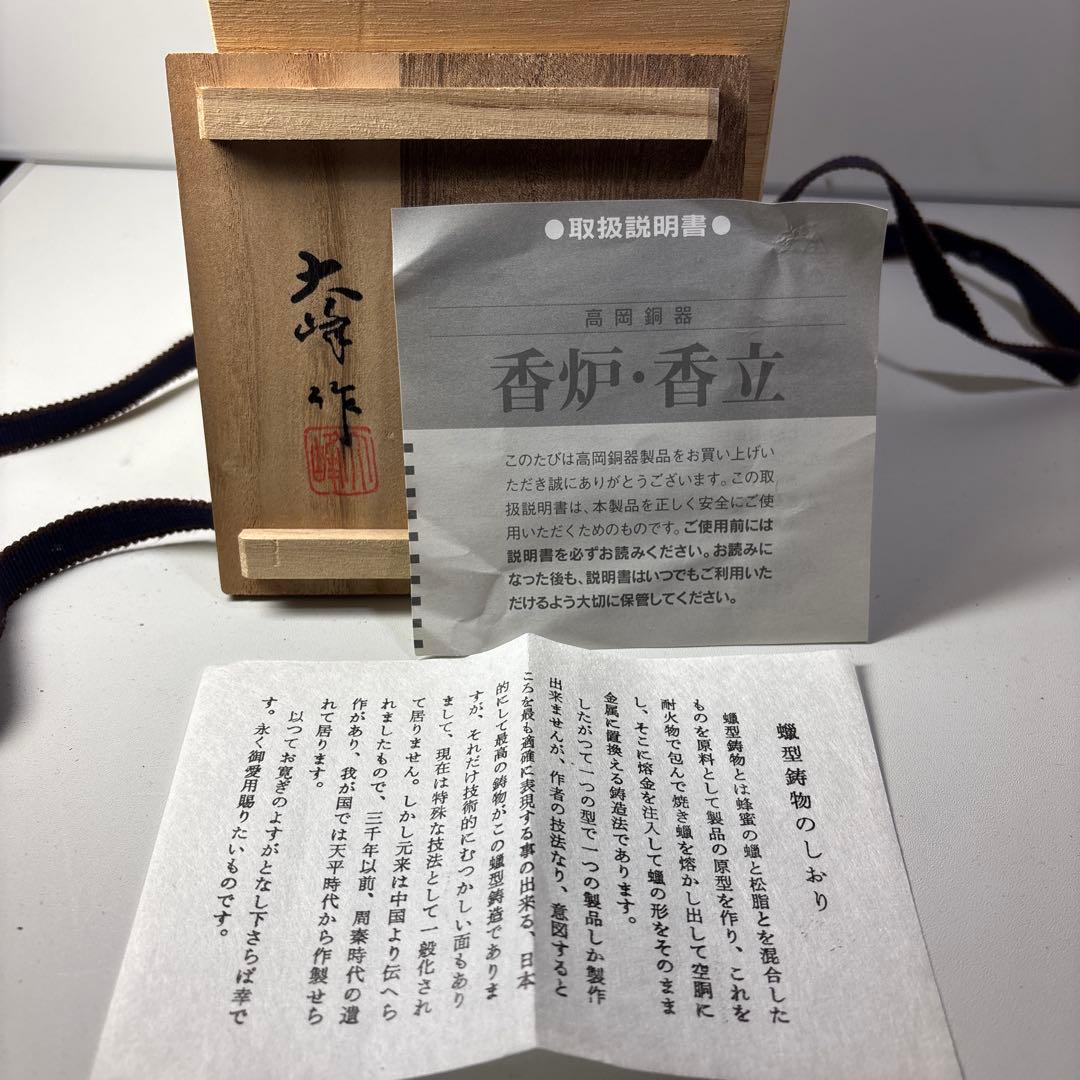 大峰作
大峰
●取扱説明書●
高岡銅器
香炉・香立
このたびは高岡銅器製品をお買い上げい
ただき誠にありがとうございます。この取
扱説明書は、本製品を正しく安全にご使
用いただくためのものです。ご使用前には
説明書を必ずお読みください。お読みに
なった後も、説明書はいつでもご利用いた
だけるよう大切に保管してください。
蠟型鋳物のしおり
蠟型鋳物とは蜂蜜の蠟と松脂とを混合した
ものを原料として製品の原型を作り、これを
耐火物で包んで焼き蠟を熔かし出して空胴に
し、そこに熔金を注入して蠟の形をそのまま
金属に置換える鋳造法であります。
したがつて一つの型で一つの製品しか製作
出来ませんが、作者の技法なり、意図すると
ころを最も適確に表現する事の出来る、日本
的にして最高の鋳物がこの蠟型鋳造でありま
すが、それだけ技術的にむつかしい面もあり
まして、現在は特殊な技法として一般化され
て居りません。しかし元来は中国より伝へら
れましたもので、三千年以前、周秦時代の遺
作があり、我が国では天平時代から作製せら
れて居ります。
以つてお寛ぎのよすがとなし下さらば幸で
す。永く御愛用賜りたいものです。